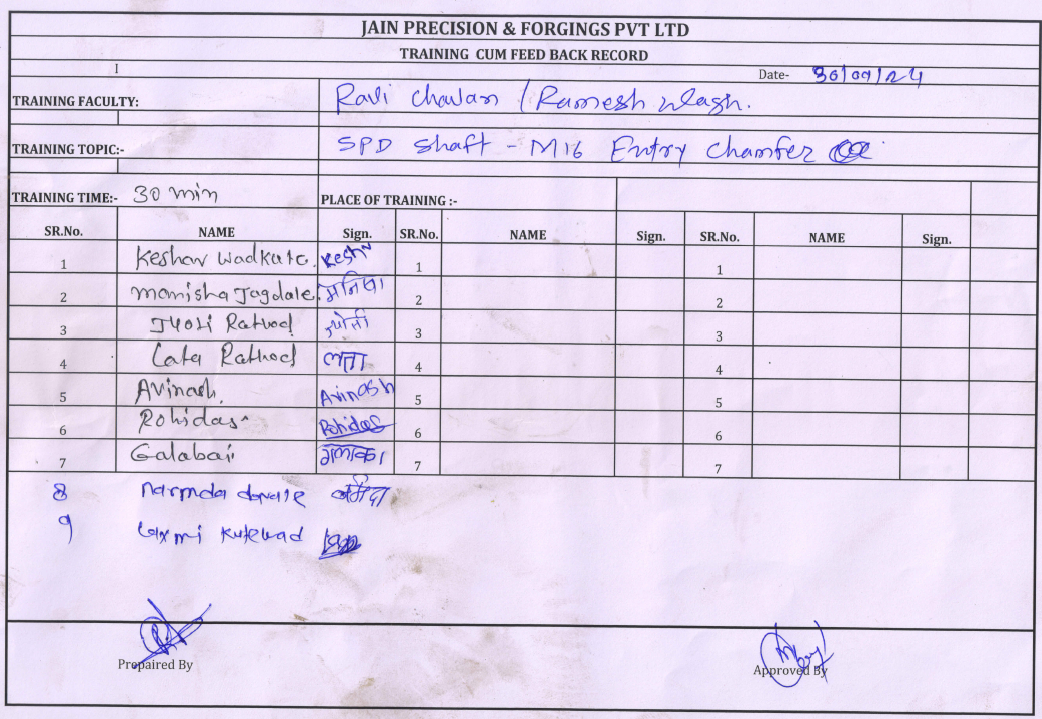 JAIN PRECISION & FORGINGS PVT LTD
TRAINING CUM FEED BACK RECORD
I
Date- 30/09/24
TRAINING FACULTY: Ravi Chavan / Ramesh Wagh.
TRAINING TOPIC:- SPD Shaft - M16 Entry Chamfer
TRAINING TIME:- 30 min PLACE OF TRAINING :-
SR.No. NAME Sign. SR.No. NAME Sign. SR.No. NAME Sign.
1 Keshav Wadkute. Keshv 1 1
2 Manisha Jagdale. मनिषा 2 2
3 Jyoti Rathod ज्योती 3 3
4 Lata Rathod लता 4 4
5 Avinash. Avinash 5 5
6 Rohidas Rohidas 6 6
7 Galabai 7 7
8 Narmda नर्मदा
9 Laxmi Kutewad
Prepaired By Approved By